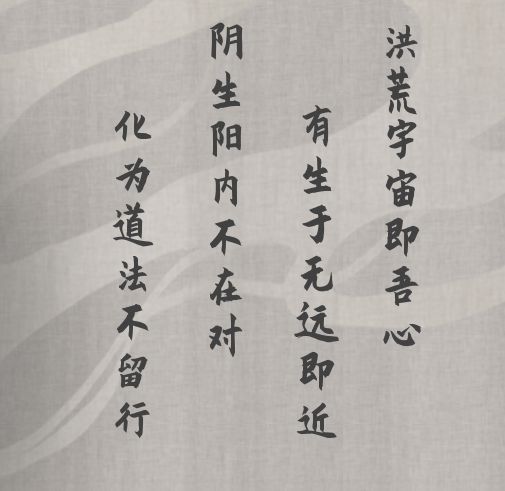 洪荒宇宙即吾心
有生于无远即近
阴生阳内不在对
化为道法不留行